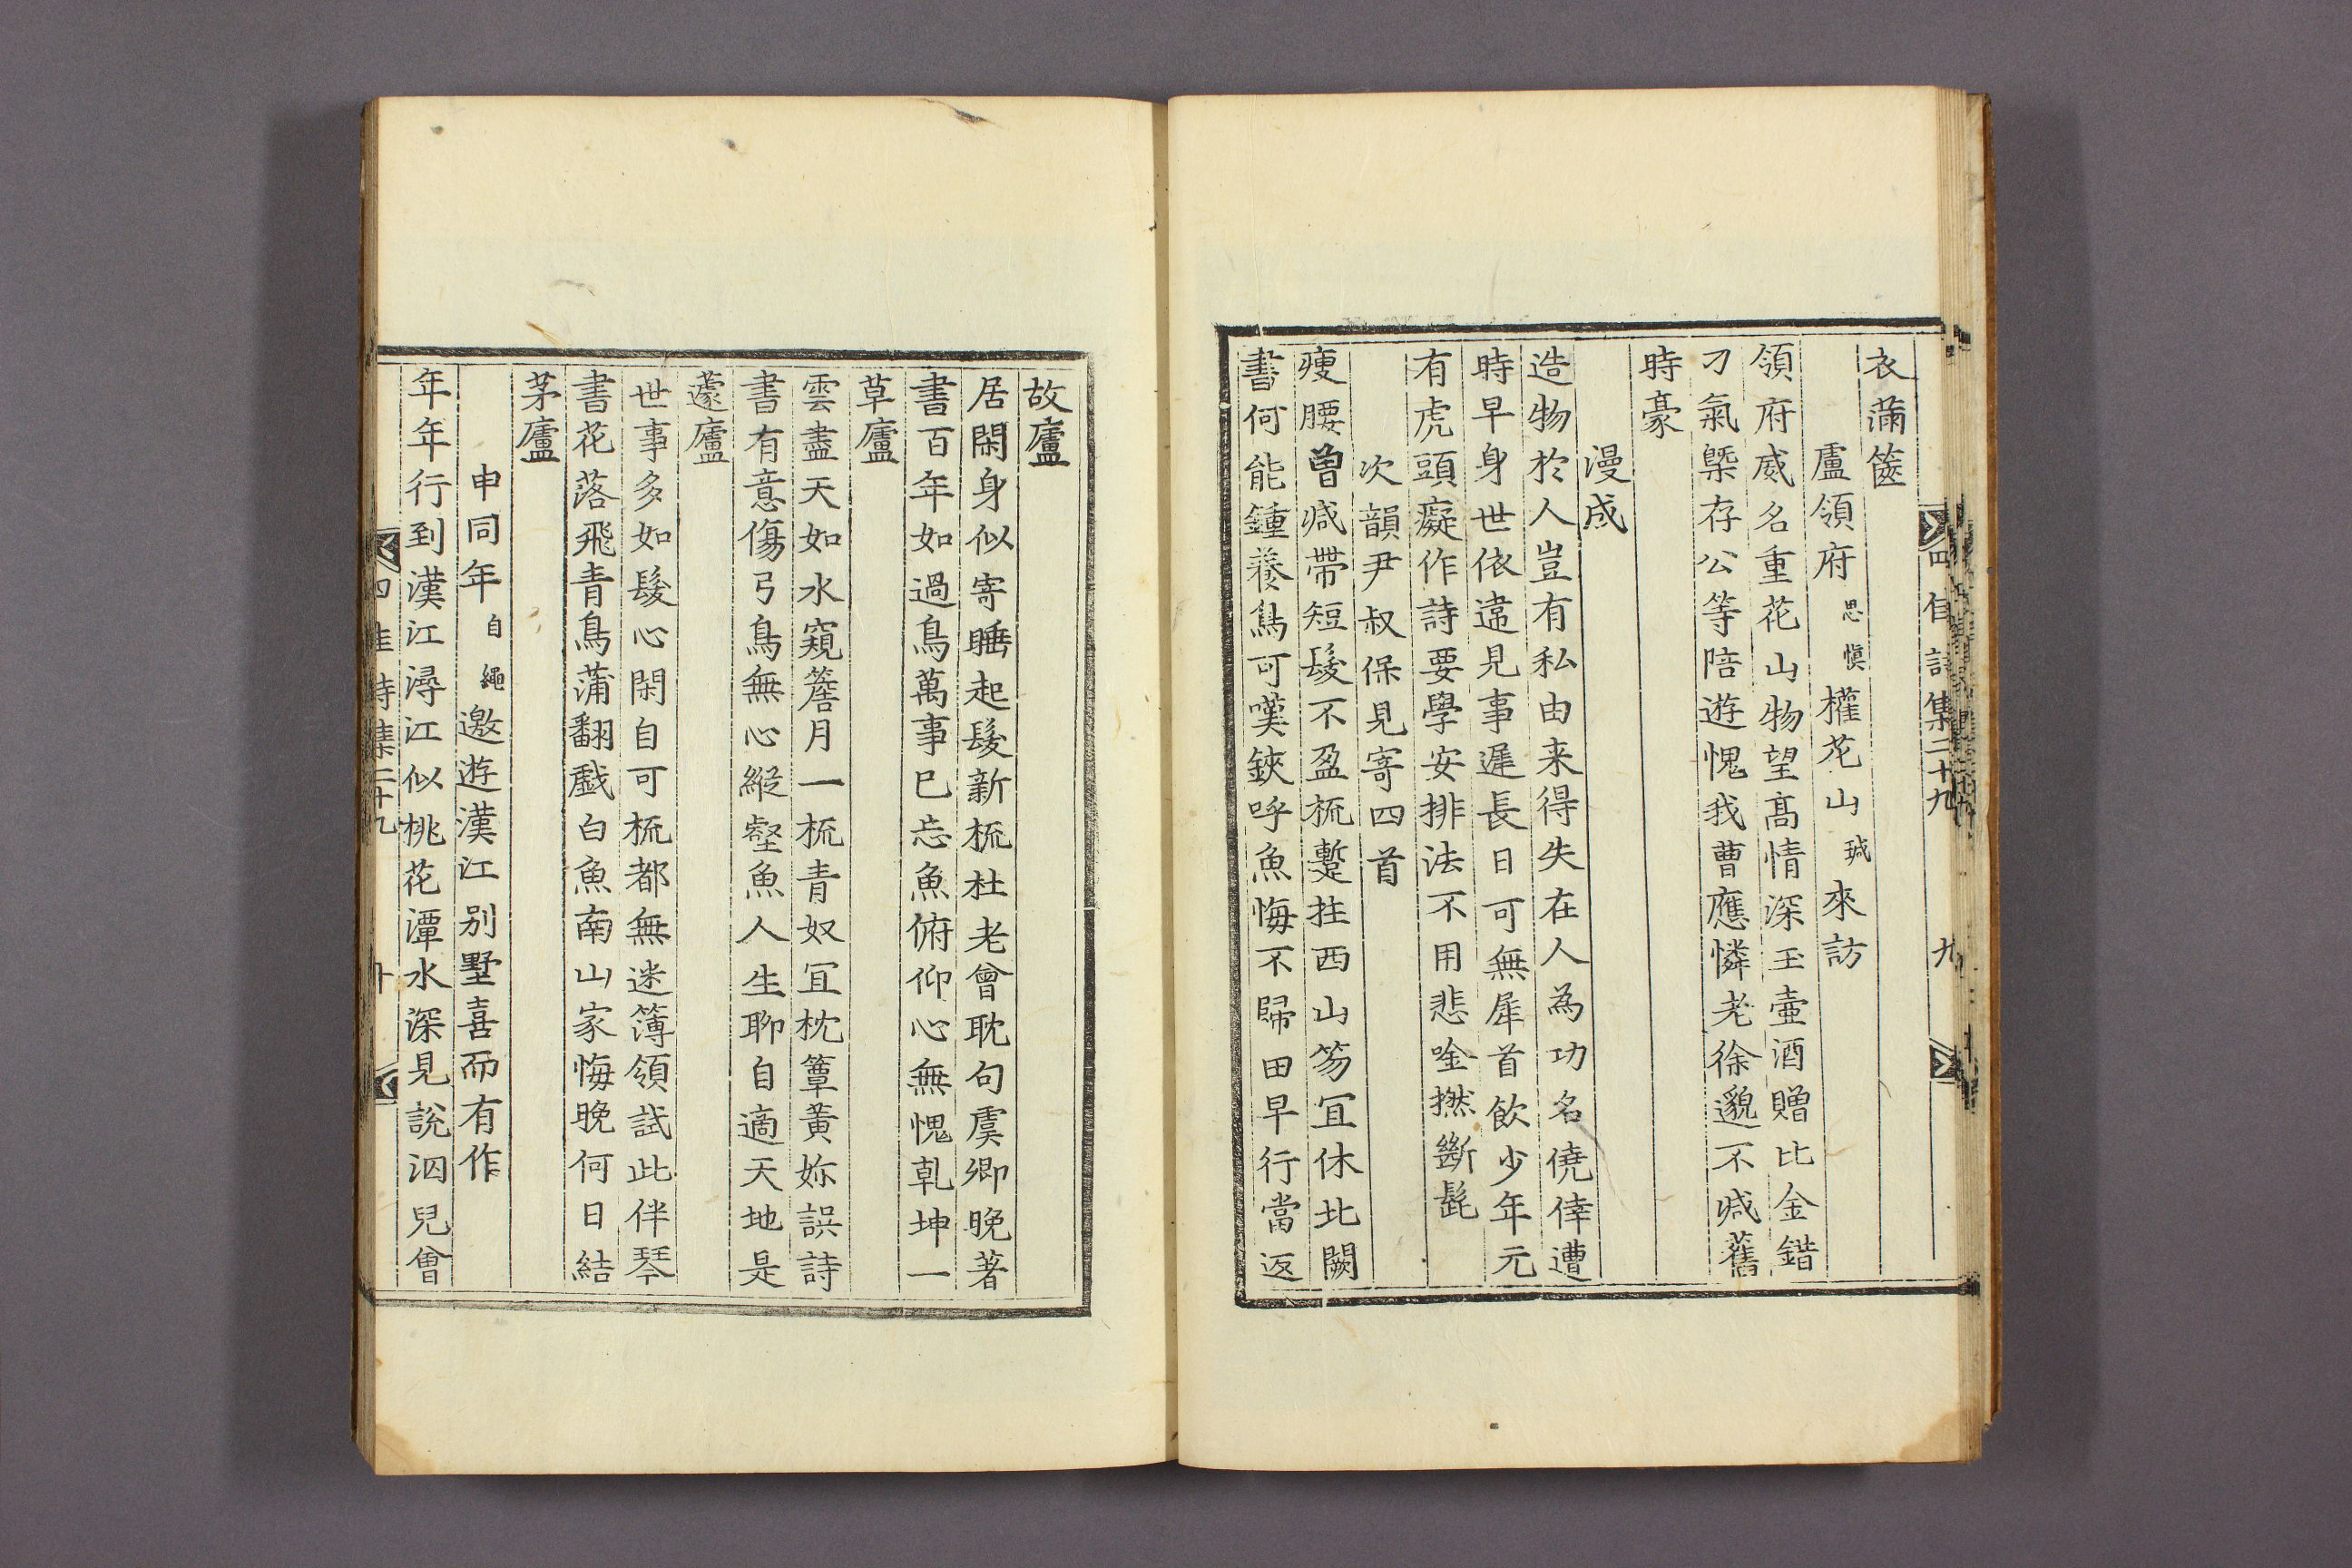 四佳詩集二十九 九
衣滿篋
盧領府思愼權花山瑊來訪
領府威名重花山物望高情深玉壺酒贈比金錯
刀氣槩存公等陪遊愧我曹應憐老徐邈不減舊
時豪
漫成
造物於人豈有私由来得失在人為功名僥倖遭
時早身世依違見事遲長日可無犀首飲少年元
有虎頭癡作詩要學安排法不用悲唫撚斷髭
次韻尹叔保見寄四首
瘦腰曽減帶短髮不盈梳蹔拄西山笏冝休北闕
書何能鍾養鳥可嘆鋏呼魚悔不歸田早行當返
故廬
居閑身似寄睡起髮新梳杜老曾耽句虞卿晚著
書百年如過鳥萬事已忘魚俯仰心無愧乹坤一
草廬
雲盡天如水窺簷月一梳青奴冝枕簟黃妳誤詩
書有意傷弓鳥無心縱壑魚人生聊自適天地是
蘧廬
世事多如髮心閑自可梳都無迷簿領試此伴琴
書花落飛青鳥蒲翻戱白魚南山家悔晚何日結
茅廬
申同年自繩邀遊漢江别墅喜而有作
年年行到漢江潯江似桃花潭水深見說泅兒會
四佳詩集二十九 十